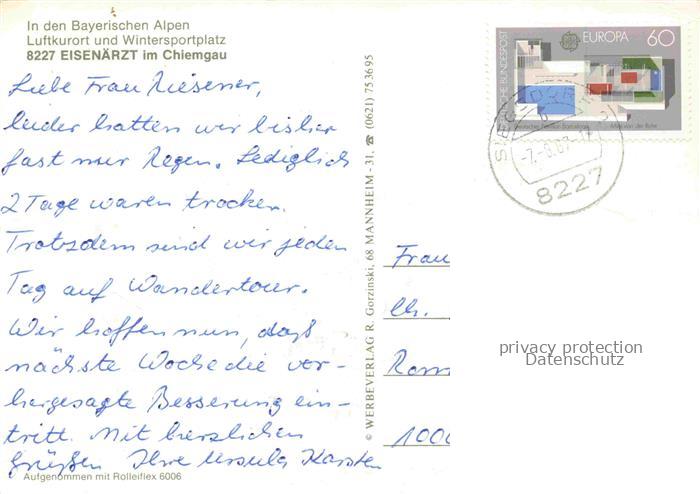 In den Bayerischen Alpen
Luftkurort und Wintersportplatz
8227 EISENÄRZT im Chiemgau
Liebe Frau Riesener,
leider hatten wir bisher
fast nur Regen. Lediglich
2 Tage waren trocken.
Trotzdem sind wir jeden
Tag auf Wandertour.
Wir hoffen nun, daß
nächste Woche die vor-
hergesagte Besserung ein-
tritt. Mit herzlichen
Grüßen Ihre Ursula Karsten
Aufgenommen mit Rolleiflex 6006
© WERBEVERLAG R. Gorzinski, 68 MANNHEIM - 31, ☎ (0621) 75 36 95
DEUTSCHE BUNDESPOST
EUROPA 60
8227
Frau
Ch.
1000
privacy protection
Datenschutz